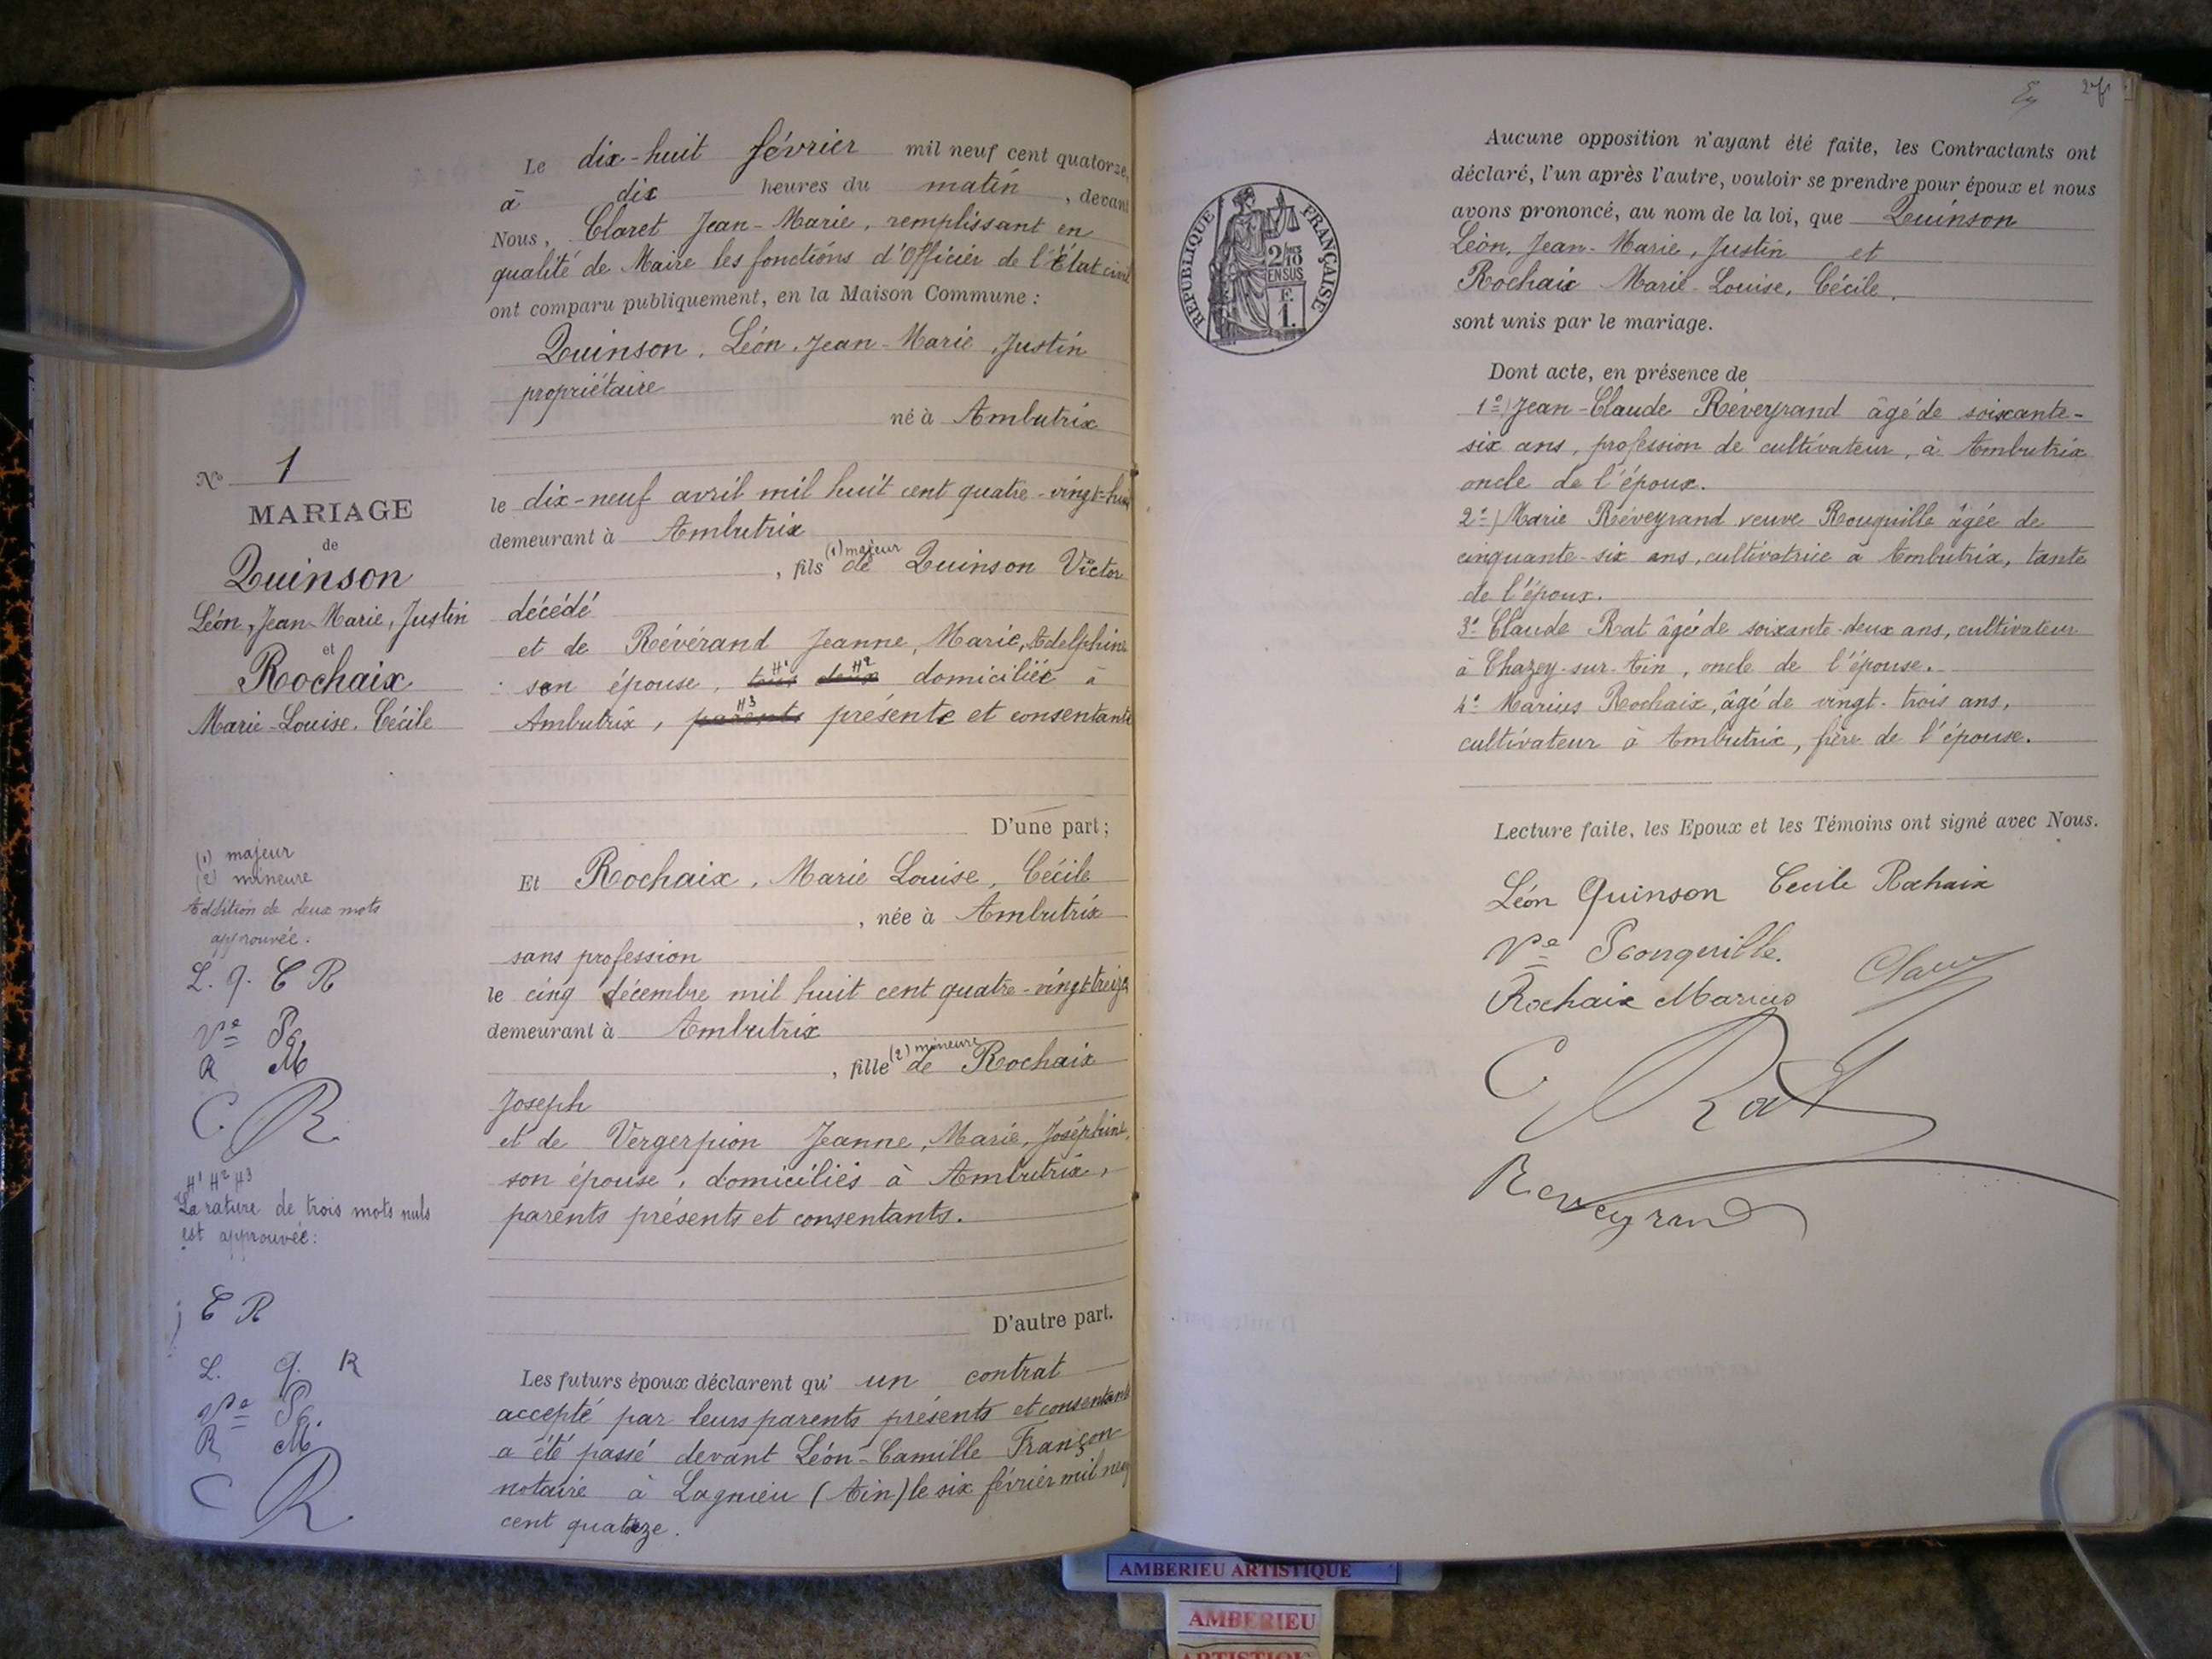 Le dix-huit février mil neuf cent quatorze,
à dix heures du matin, devant
Nous, Claret Jean-Marie, remplissant en
qualité de Maire les fonctions d'Officier de l'État civil
ont comparu publiquement, en la Maison Commune :
Quinson, Léon, Jean-Marie, Justin
propriétaire
né à Ambutrix
le dix-neuf avril mil huit cent quatre-vingt-
demeurant à Ambutrix
(1) majeur
, fils de Quinson Victor
décédé
et de Révérand Jeanne, Marie, Adelphine
#1 #2
son épouse, tous deux domiciliée à
#3
Ambutrix, parents présente et consentante
D'une part ;
Et Rochaix, Marie Louise, Cécile
, née à Ambutrix
sans profession
le cinq décembre mil huit cent quatre-vingt-treize
demeurant à Ambutrix
(2) mineure
, fille de Rochaix
Joseph
et de Vergerpion Jeanne, Marie, Joséphine,
son épouse, domiciliés à Ambutrix,
parents présents et consentants.
D'autre part.
Les futurs époux déclarent qu'un contrat
accepté par leurs parents présents et consentants
a été passé devant Léon-Camille Françon
notaire à Lagnieu (Ain) le six février mil neuf
cent quatorze.
No 1
MARIAGE
de
Quinson
Léon, Jean-Marie, Justin
et
Rochaix
Marie-Louise, Cécile
(1) majeur
(2) mineure
Addition de deux mots
approuvée.
L. q. C R
Ve
R M
C. R.
#1 #2 #3
La rature de trois mots nuls
est approuvée :
C R
L. q. R
Ve
R M
C R.
Aucune opposition n'ayant été faite, les Contractants ont
déclaré, l'un après l'autre, vouloir se prendre pour époux et nous
avons prononcé, au nom de la loi, que Quinson
Léon, Jean-Marie, Justin et
Rochaix Marie-Louise, Cécile,
sont unis par le mariage.
RÉPUBLIQUE FRANÇAISE
2/10
EN SUS
F.
1.
Dont acte, en présence de
1º) Jean-Claude Réveyrand âgé de soixante-
six ans, profession de cultivateur, à Ambutrix
oncle de l'époux.
2º) Marie Réveyrand veuve Rouquille âgée de
cinquante-six ans, cultivatrice à Ambutrix, tante
de l'époux.
3º Claude Rat âgé de soixante-deux ans, cultivateur
à Chazey-sur-Ain, oncle de l'épouse.
4º Marius Rochaix, âgé de vingt-trois ans,
cultivateur à Ambutrix, frère de l'épouse.
Lecture faite, les Epoux et les Témoins ont signé avec Nous.
Léon Quinson Cecile Rochaix
Ve
Rochaix Marius
C Rat
Reveyrand
AMBERIEU ARTISTIQUE
AMBERIEU
ARTISTIQU